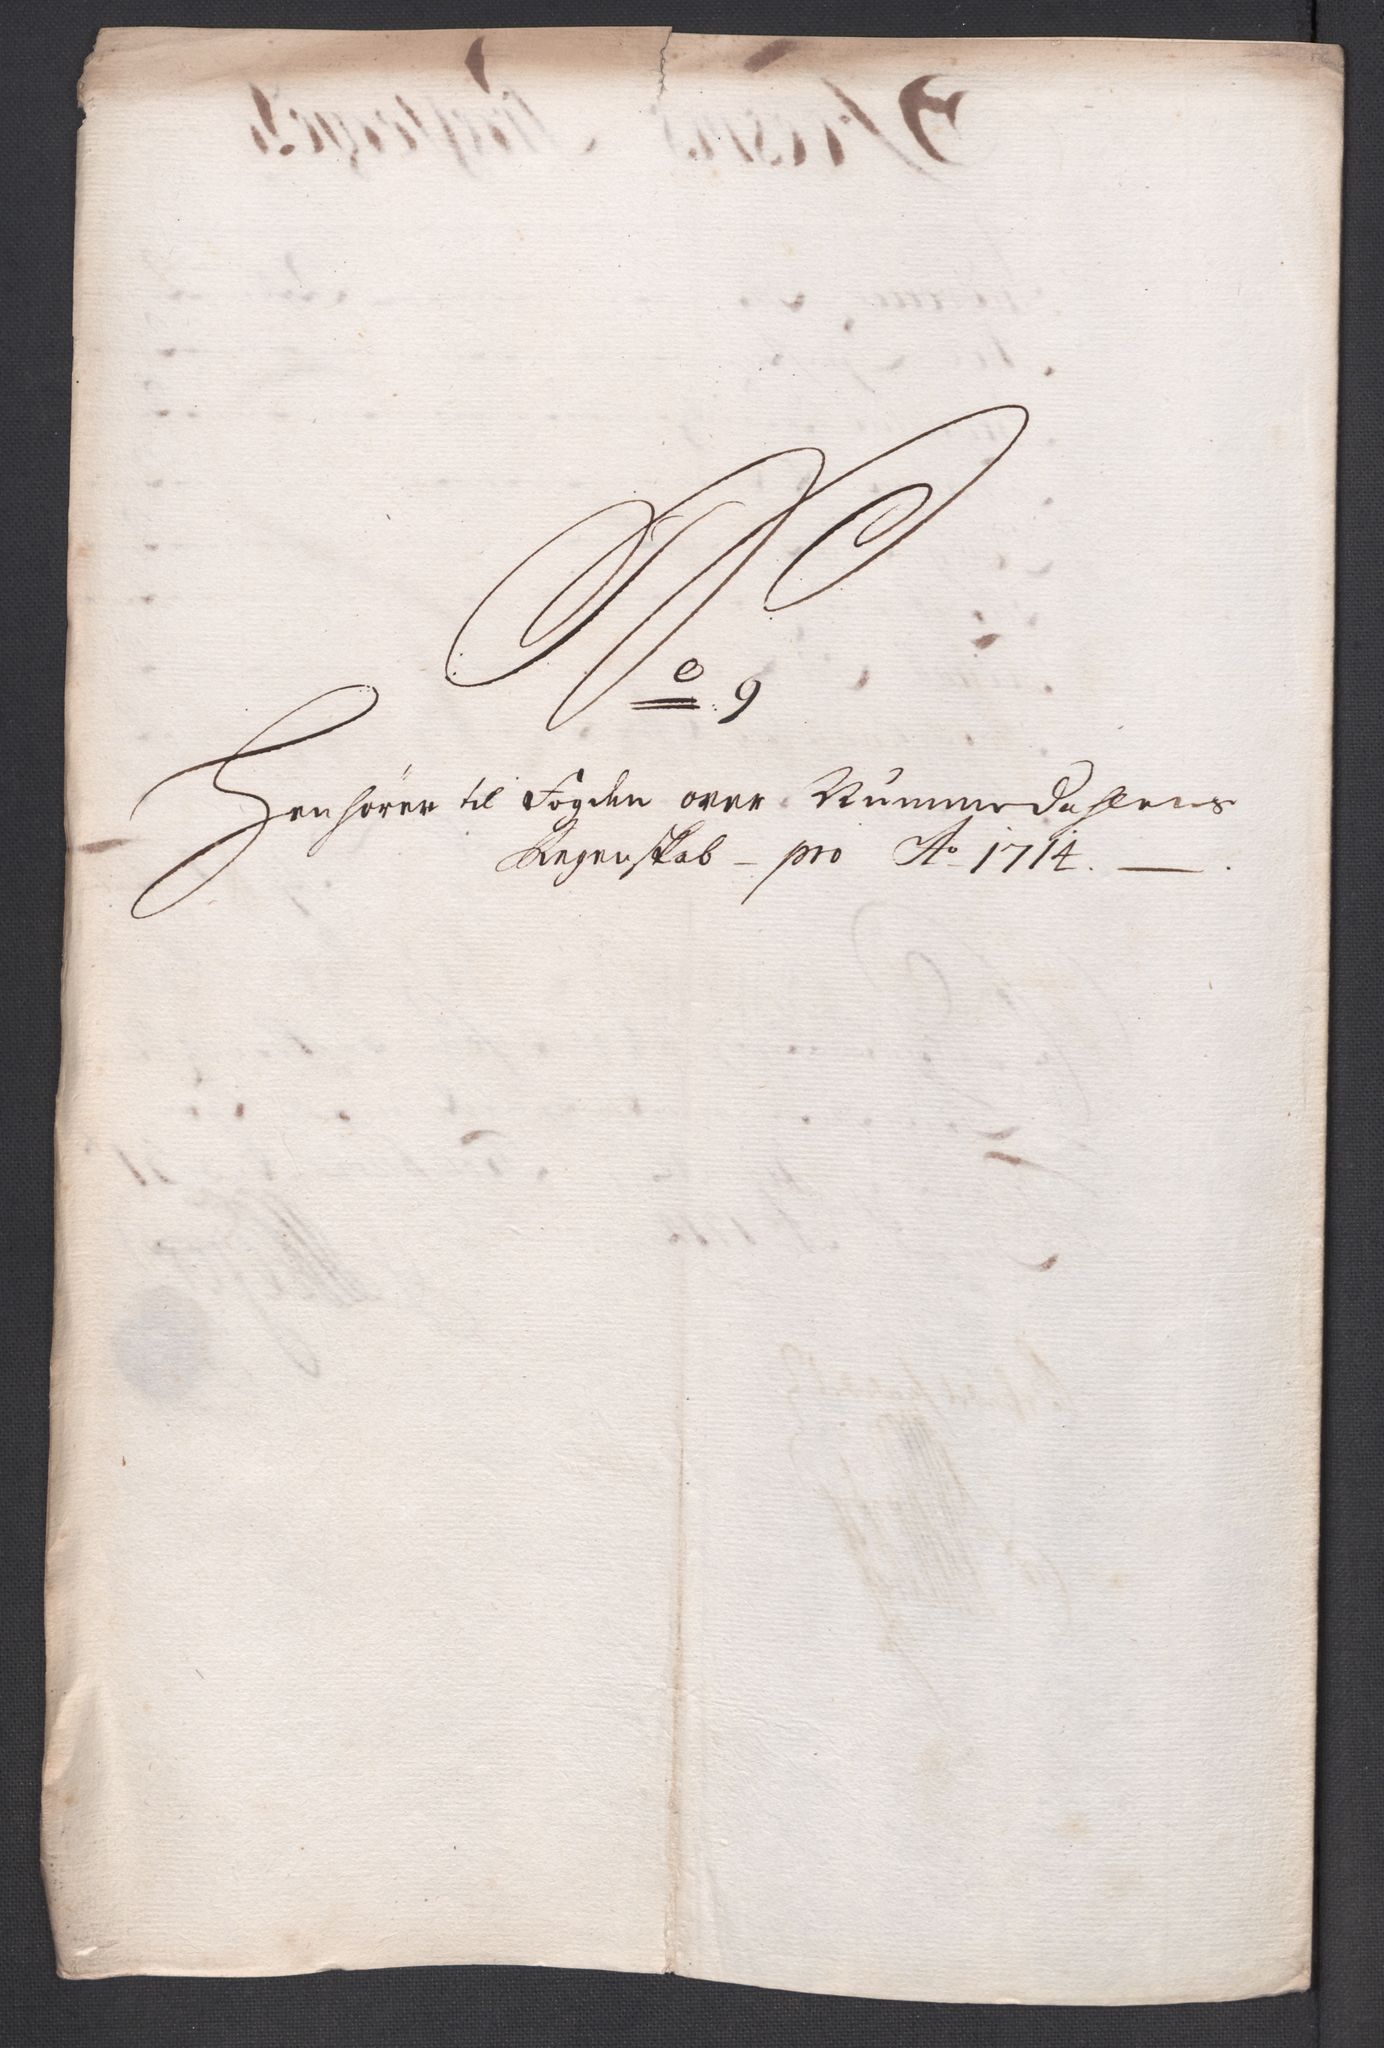 No 9
Henhører til Fogden over Nummedahlens
Regenskab - pro Ao 1714.